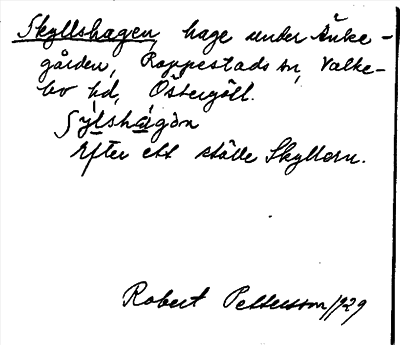 Skyllshagen, hage under Änke-
gården, Rappestads sn, Valke-
bo hd, Östergötl.
ʃýlshàgǝn
Efter ett ställe Skyllorn.
Robert Pettersson 1929